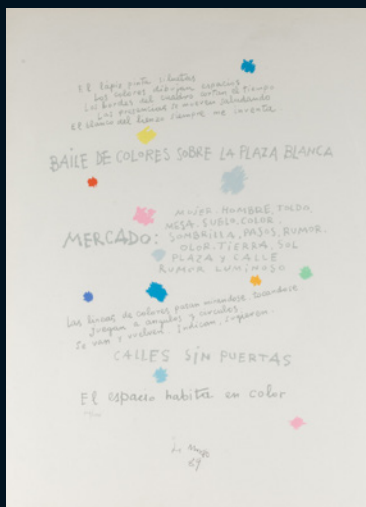 El lápiz pinta siluetas
Los colores dibujan espacios
Los bordes del cuadro cortan el tiempo
Los personajes se mueven saludando
El blanco del lienzo siempre me inventa.
BAILE DE COLORES SOBRE LA PLAZA BLANCA
MERCADO:
MUJER. HOMBRE, TOLDO,
MESA. SUELO. COLOR.
SOMBRILLA, PASOS, RUMOR.
OLOR. TIERRA, SOL
PLAZA Y CALLE
RUMOR LUMINOSO
Las líneas de colores pasan mirándose. tocándose
Juegan a ángulos y círculos.
Se van y vuelven. Indican, sugieren.
CALLES SIN PUERTAS
El espacio habita en color
89